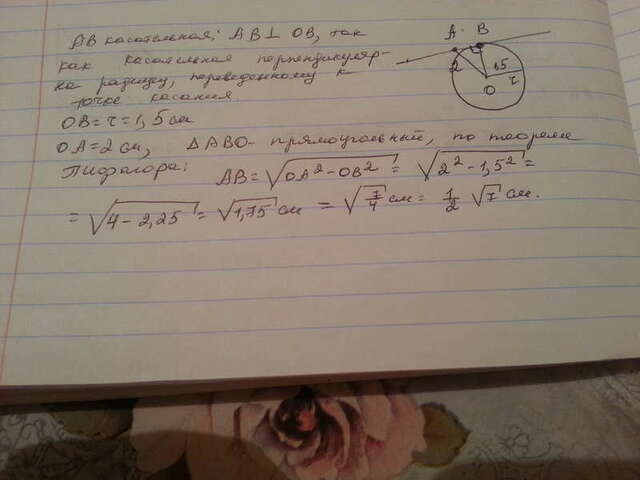 AB касательная; AB⊥ OB, так
как касательная перпендикуляр-
на радиусу, переведенному к
точке касания.
OB = r = 1,5 см
OA = 2 см, △ABO - прямоугольный, по теореме
Пифагора: AB = √OA² - OB² = √2² - 1,5² =
= √4 - 2,25 = √1,75 см = √7/4 см = 1/2 √7 см.
A · B
2 1,5
r
O